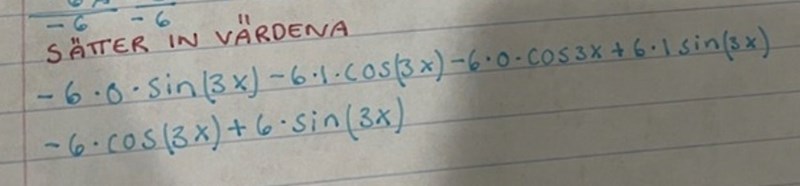 -6 -6
SÄTTER IN VÄRDENA
-6·0·sin(3x)-6·1·cos(3x)-6·0·cos3x+6·1sin(3x)
-6·cos(3x)+6·sin(3x)